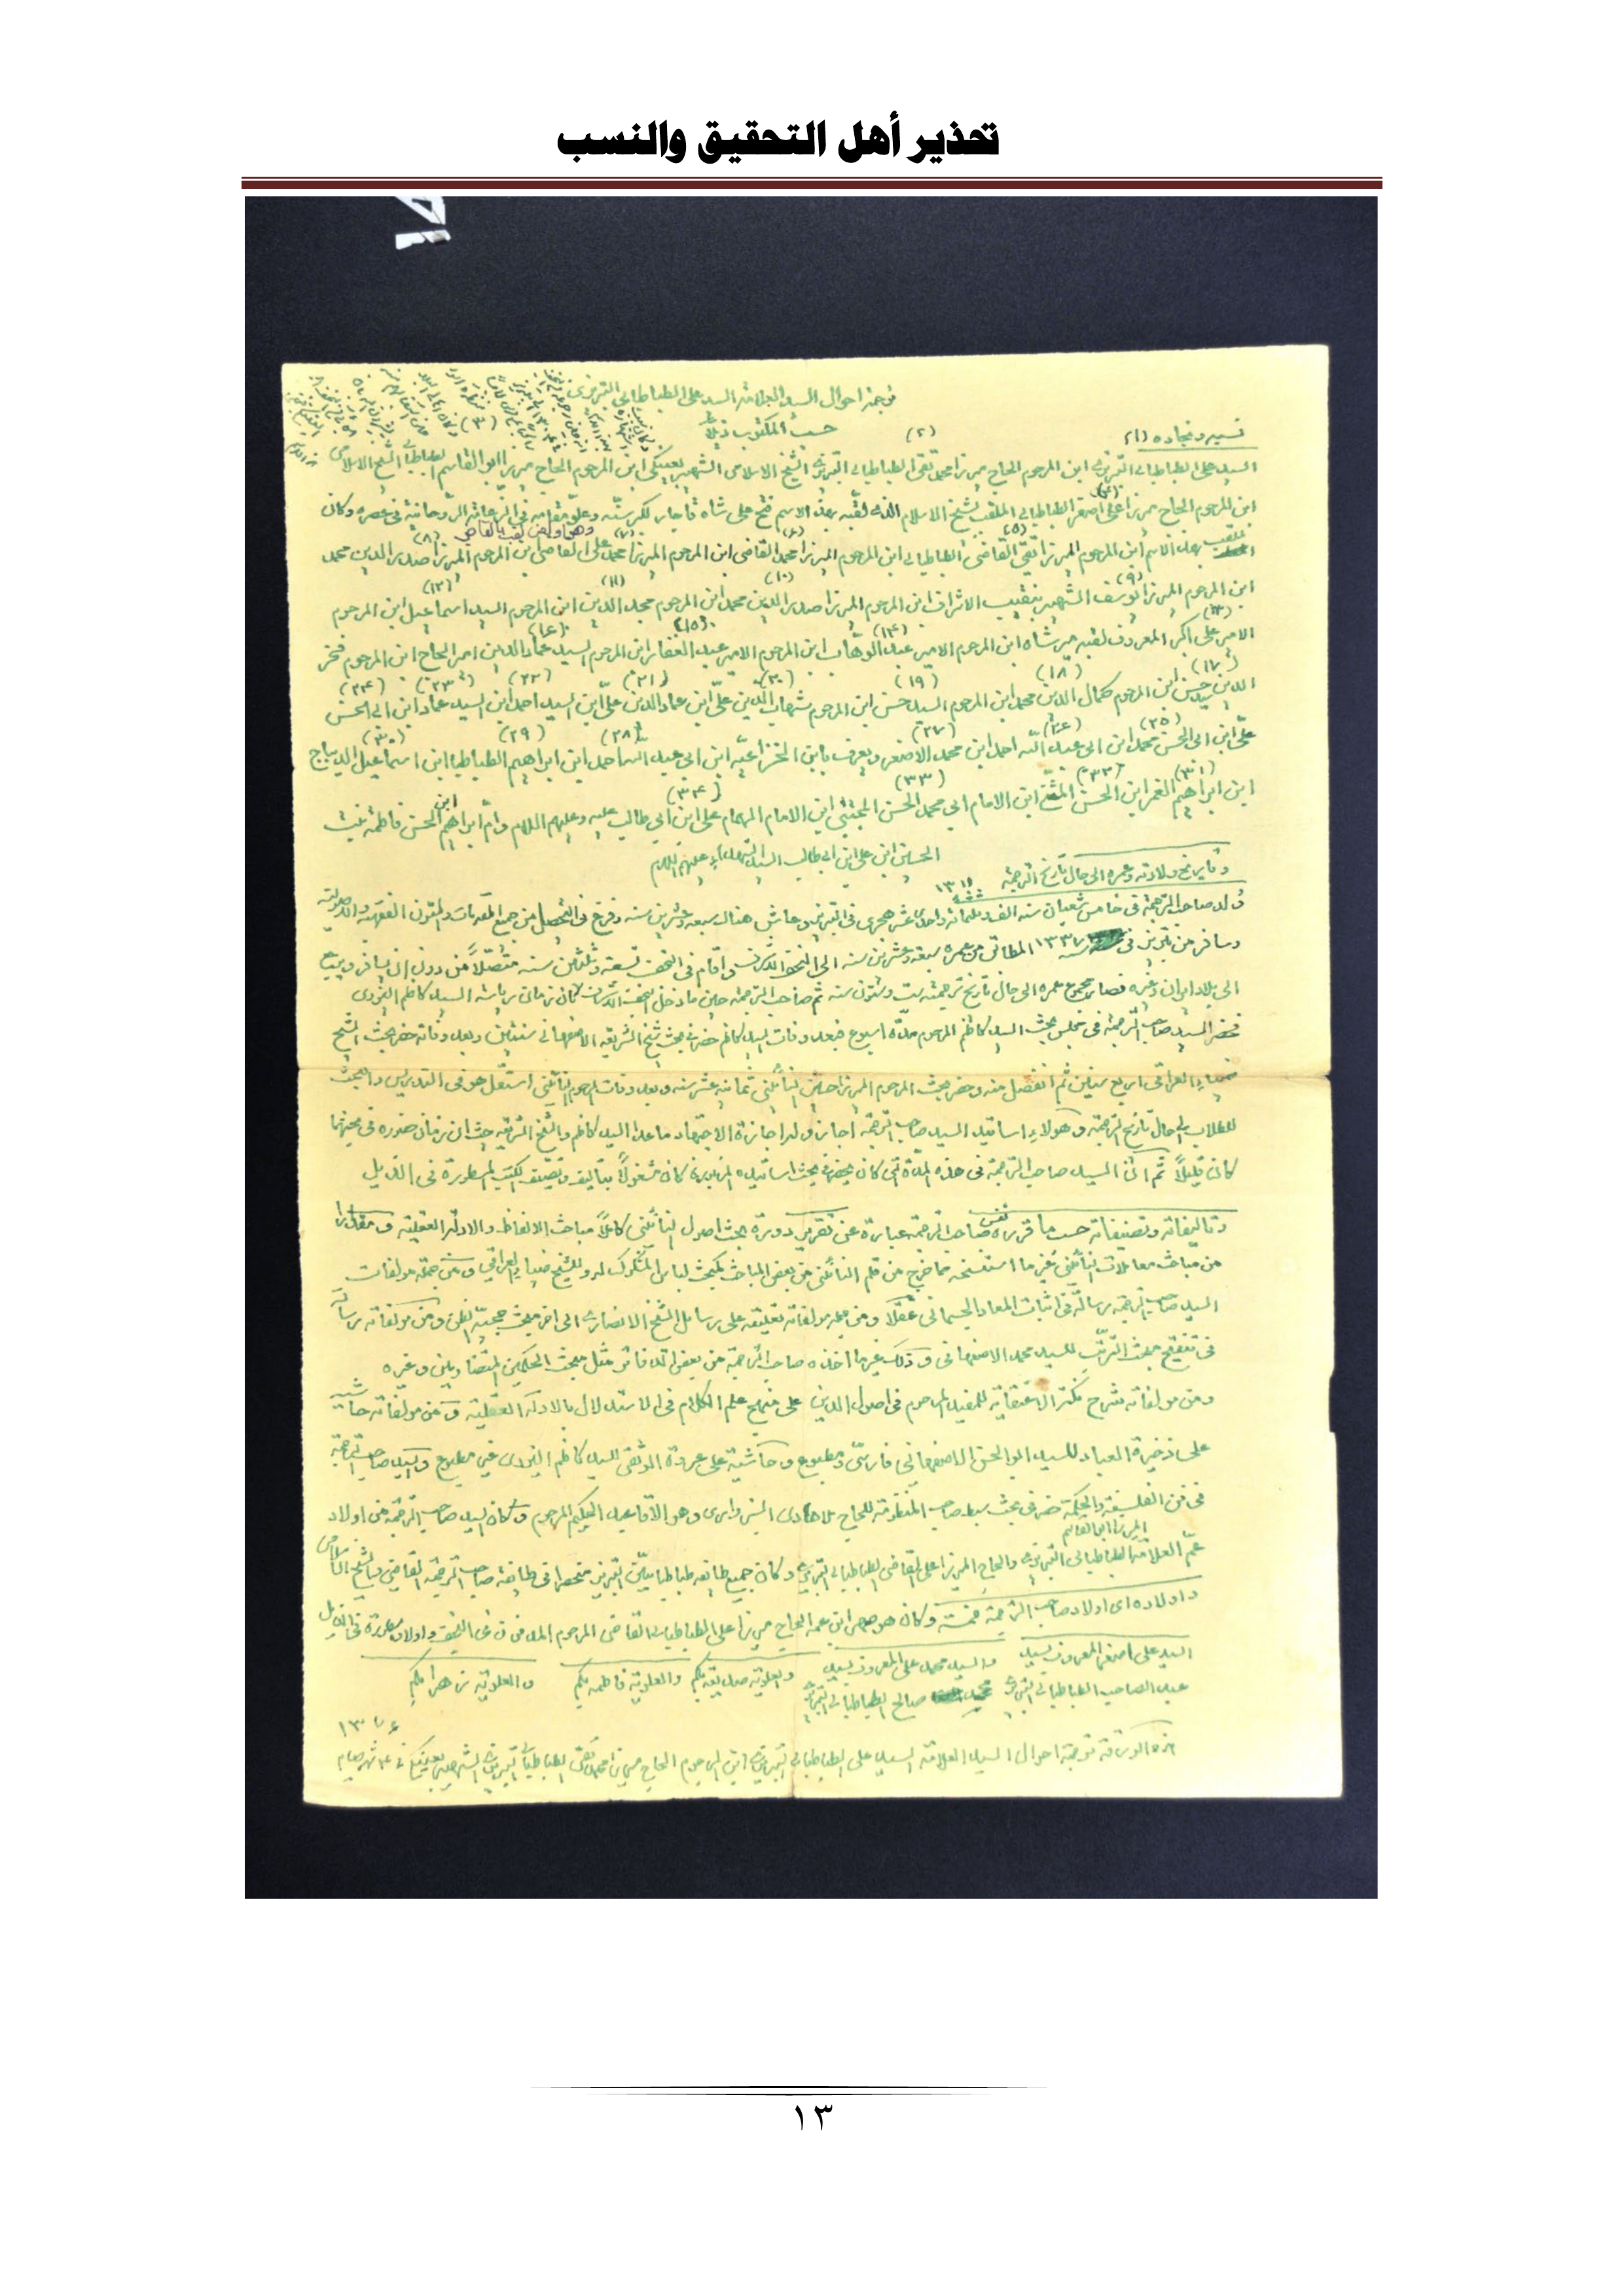 تحذير أهل التحقيق والنسب
ترجمة احوال السيد العلامة السيد على الطباطبائى التبريزى
حسب المكتوب ذيلاً
نسبه ونجاده (١) (٢) (٣)
السيد على الطباطبائى التبريزى ابن المرحوم الحاج ميرزا محمد تقى الطباطبائى التبريزى الشيخ الاسلامى الشهير ابن المرحوم الحاج ميرزا ابو القاسم الطباطبائى الشيخ الاسلامى
(٤)
ابن المرحوم الحاج ميرزا على اصغر الطباطبائى الملقب بشيخ الاسلام الذى لقبه بهذا الاسم فتح على شاه قاجار لكبر سنه وعلو مقامه فى الزعامة الروحانية فى عصره وكان
وهو اول من لقب بالقاضى
(٥) (٦) (٧) (٨)
يلقب بهذا الاسم ابن المرحوم الميرزا تقى القاضى الطباطبائى ابن المرحوم الميرزا محمد القاضى ابن المرحوم الميرزا محمد على القاضى بن المرحوم الميرزا صدر الدين محمد
(٩) (١٠) (١١) (١٢)
ابن المرحوم الميرزا يوسف الشهير بنقيب الاشراف ابن المرحوم الميرزا صدر الدين محمد ابن المرحوم مجد الدين ابن المرحوم السيد اسماعيل ابن المرحوم
(١٣) (١٤) (١٥) (١٦)
الامير على اكبر المعروف لقبه مير شاه ابن المرحوم الامير عبد الوهاب ابن المرحوم الامير عبد الغفار ابن المرحوم السيد عماد الدين امير الحاج ابن المرحوم فخر
(١٧) (١٨) (١٩) (٢٠) (٢١) (٢٢) (٢٣) (٢٤)
الدين حسن ابن المرحوم كمال الدين محمد ابن المرحوم السيد حسن ابن المرحوم شهاب الدين على ابن عماد الدين على ابن السيد احمد ابن السيد عماد ابن ابى الحسن
(٢٥) (٢٦) (٢٧) (٢٨) (٢٩) (٣٠)
على ابن ابى الحسن محمد ابن ابى عبد الله احمد ابن محمد الاصغر ويعرف بابن الخزاعية ابن ابى عبد الله احمد ابن ابراهيم الطباطبا ابن اسماعيل الديباج
(٣١) (٣٢) (٣٣) (٣٤)
ابن ابراهيم الغمر ابن الحسن المثنى ابن الامام ابى محمد الحسن المجتبى ابن الامام الهمام على ابن ابى طالب عليه وعليهم السلام وام ابراهيم ابن الحسن فاطمة بنت
الحسين ابن على ابن ابى طالب السيد الشهداء عليهم السلام
وتاريخ ولادته وعمره الى حال تاريخ الترجمة
١٣١١
ولد صاحب الترجمة فى خامس شعبان سنة الف وثلثمائة واحدى عشر هجرى فى التبريز وعاش هناك سبعة وعشرين سنة وفرغ فى التحصيل من جميع المقدمات والمتون الفقهية والاصولية
وسافر من تبريز فى سنة ١٣٣٧ المطابق من عمره سبعة وعشرين سنة الى النجف الاشرف واقام فى النجف تسعة وثلثين سنة متصلاً من دون ان يسافر
الى بلاد ايران وغيره فصار مجموع عمره الى حال تاريخ ترجمته ست وستون سنة ثم صاحب الترجمة حين ما دخل النجف الاشرف كان زمان رياسة السيد كاظم اليزدى
فحضر السيد صاحب الترجمة فى مجلس بحث السيد كاظم المرحوم مدة اسبوع فبعد وفات السيد كاظم حضر فى بحث شيخ الشريعة الاصفهانى سنتين وبعد وفاته حضر بحث الشيخ
ضياء العراقى اربع سنين ثم انفصل منه وحضر بحث المرحوم الميرزا حسين النائينى ثمانية عشر سنة وبعد وفات المرحوم النائينى استقل هو فى التدريس والبحث
للطلاب الى حال تاريخ الترجمة وهولاء اساتيد السيد صاحب الترجمة اجازوا له اجازة الاجتهاد ماعدا السيد كاظم والشيخ الشريعة حيث ان زمان حضوره فى بحثهما
كان قليلاً ثم ان السيد صاحب الترجمة فى هذه المدة التى كان يحضر فى بحث اساتيده المزبورة كان مشغولاً بتاليف وتصنيف الكتب المسطورة فى الذيل
وتاليفاته وتصنيفاته حسب ما قرره نفس صاحب الترجمة عبارة عن تقرير دورة بحث اصول النائينى كاملاً مباحث الالفاظ والادلة العقلية ومقدارا
من مباحث معاملات النائينى غير ما استنسخه مما خرج من قلم النائينى من بعض المباحث كمبحث لباس المشكوك له وللشيخ ضياء العراقى ومن جملة مولفات
السيد صاحب الترجمة رسالة فى اثبات المعاد الجسمانى عقلا ومن جملة مولفاته تعليقة على رسائل الشيخ الانصارى الى اخر مبحث حجية الظن ومن مولفاته رسالة
فى تنقيح مبحث الترتب للسيد محمد الاصفهانى وذلك غير ما اخذه صاحب الترجمة من بعض الدفاتر مثل مبحث الحكمين المتضادين وغيره
ومن مولفاته شرح نكت الاعتقادية للمفيد المرحوم فى اصول الدين على منهج علم الكلام فى الاستدلال بالادلة العقلية ومن مولفاته حاشية
على ذخيرة العباد للسيد ابو الحسن الاصفهانى فارسى ومطبوع وحاشية على عروة الوثقى للسيد كاظم اليزدى غير مطبوع والسيد صاحب الترجمة
فى فن الفلسفة والحكمة حضر فى بحث سبط صاحب المنظومة للحاج ملا هادى السبزوارى وهو الاقا عبد الحكيم المرحوم وكان السيد صاحب الترجمة من اولاد
الميرزا ابو القاسم
عم العلامة الطباطبائى التبريزى والحاج الميرزا على القاضى الطباطبائى التبريزى وكان جميع طائفة طباطبائيين التبريز منحصرا فى طائفة صاحب الترجمة القاضى وشيخ الاسلامى
واولاده اى اولاد صاحب الترجمة خمسة وكان هو صهر ابن عمه الحاج ميرزا على الطباطبائى القاضى المرحوم المدفون فى النجف واولاده مسطورة فى الذيل
السيد على اصغر المعروف بسيد والسيد محمد على المعروف بسيد والعلوية صديقه بكم والعلوية فاطمه بكم والعلوية زهرا بكم
عبد الصاحب الطباطبائى التبريزى صالح الطباطبائى التبريزى
١٣٧٦
هذه الورقة ترجمة احوال السيد العلامة السيد على الطباطبائى التبريزى ابن المرحوم الحاج ميرزا محمد تقى الطباطبائى التبريزى الشهير
١٣